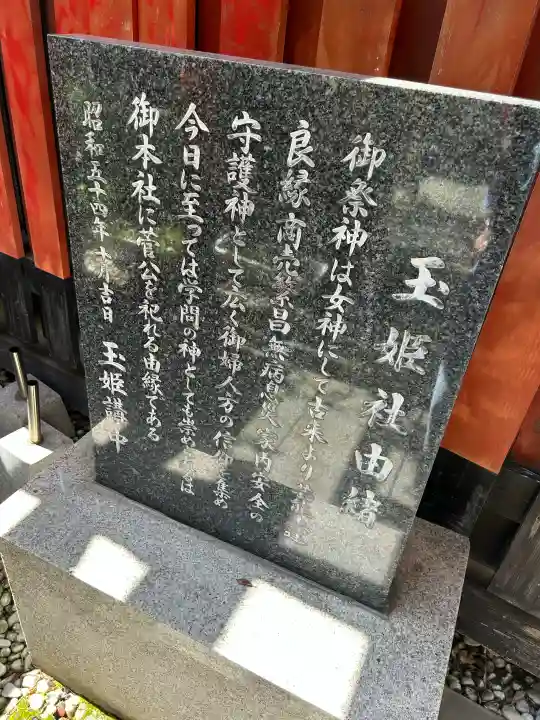 玉姫社由緒
御祭神は女神にして古来より
良縁商売繁昌無病息災家内安全の
守護神として広く御婦人方の信仰を集め
今日に至っては学問の神としても崇め
御本社に菅公を祀れる由縁である
昭和五十四年 吉日 玉姫講中